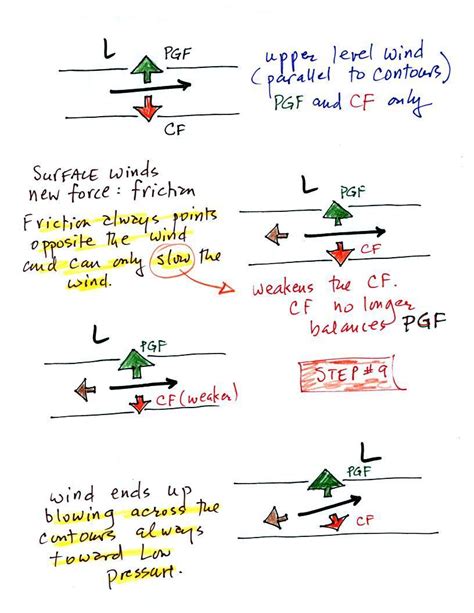 L
PGF
CF
upper level wind
(parallel to contours)
PGF and CF only
SURFACE winds
new force: friction
Friction always points
opposite the wind
and can only slow the
wind.
L
PGF
CF
weakens the CF.
CF no longer
balances PGF
L
PGF
CF (weaker)
STEP #9
L
PGF
CF
wind ends up
blowing across the
contours always
toward Low
Pressure.